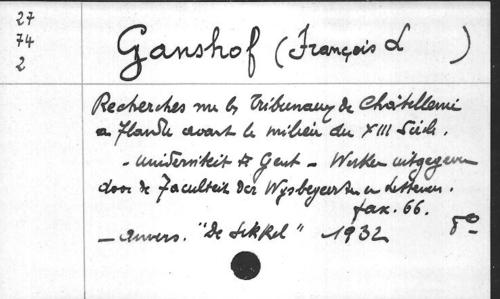 27
74
2
Ganshof (François L )
Recherches sur les Tribunaux de Châtellenie
en Flandre avant le milieu du XIII Siècle.
- Universiteit te Gent - Werken uitgegeven
door de Faculteit der Wijsbegeerte en Letteren.
fax. 66.
- Anvers. "De Sikkel" 1932 8°